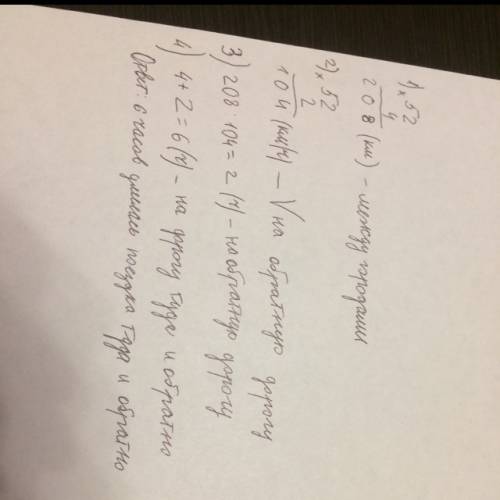 1) × 52
4
208 (км) – между городами
2) × 52
2
104 (км/ч) – V на обратную дорогу
3) 208 : 104 = 2 (ч) – на обратную дорогу
4) 4 + 2 = 6 (ч) – на дорогу туда и обратно
Ответ: 6 часов длилась поездка туда и обратно